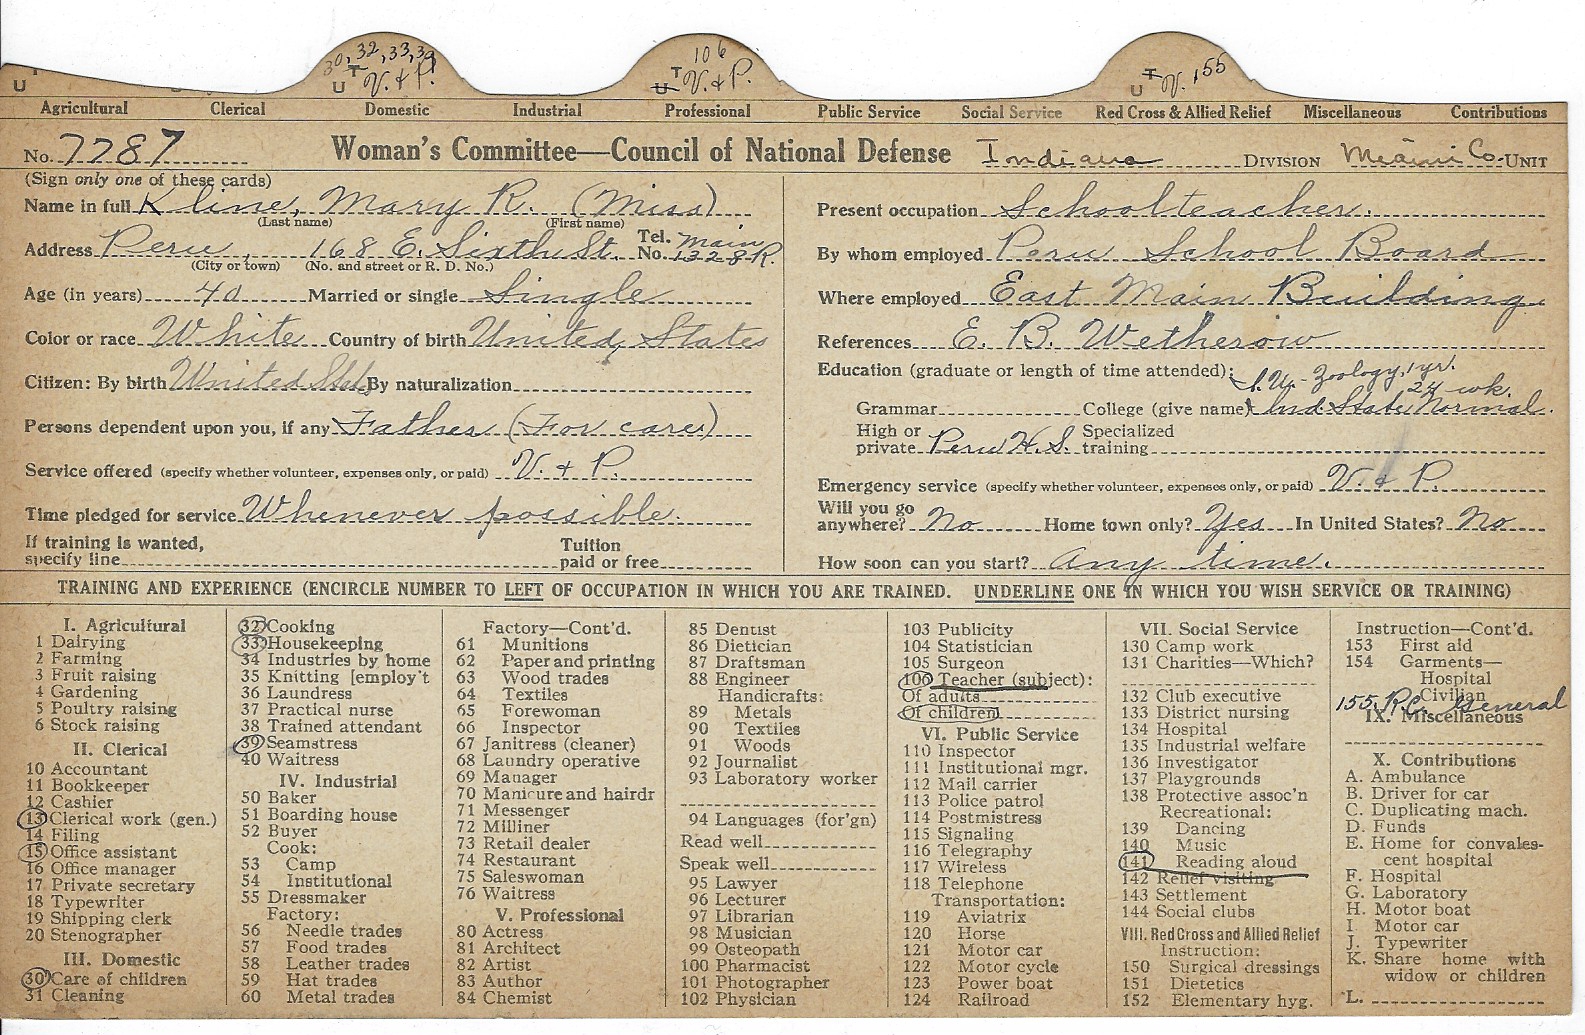 30, 32, 33, 39 106
U T V. & P. U T V. & P. U T V. 155
U T
Agricultural Clerical Domestic Industrial Professional Public Service Social Service Red Cross & Allied Relief Miscellaneous Contributions
No. 7787 Woman's Committee—Council of National Defense Indiana DIVISION Miami Co. UNIT
(Sign only one of these cards)
Name in full Kline, Mary R. (Miss)
(Last name) (First name)
Address Peru, 168 E. Sixth St. Tel. No. Main 1328R.
(City or town) (No. and street or R. D. No.)
Age (in years) 40 Married or single Single
Color or race White Country of birth United States
Citizen: By birth United Stat By naturalization
Persons dependent upon you, if any Father (For care)
Service offered (specify whether volunteer, expenses only, or paid) V. & P.
Time pledged for service Whenever possible.
If training is wanted, specify line Tuition paid or free
Present occupation Schoolteacher.
By whom employed Peru School Board
Where employed East Main Building
References E. B. Wetherow
Education (graduate or length of time attended): I. U.- Zoology, 1 yr.
24 wk.
Grammar College (give name) Ind. State Normal.
High or private Peru H. S. Specialized training
Emergency service (specify whether volunteer, expenses only, or paid) V. & P.
Will you go anywhere? No Home town only? Yes In United States? No
How soon can you start? Any time.
TRAINING AND EXPERIENCE (ENCIRCLE NUMBER TO LEFT OF OCCUPATION IN WHICH YOU ARE TRAINED. UNDERLINE ONE IN WHICH YOU WISH SERVICE OR TRAINING)
I. Agricultural
1 Dairying
2 Farming
3 Fruit raising
4 Gardening
5 Poultry raising
6 Stock raising
II. Clerical
10 Accountant
11 Bookkeeper
12 Cashier
13 Clerical work (gen.)
14 Filing
15 Office assistant
16 Office manager
17 Private secretary
18 Typewriter
19 Shipping clerk
20 Stenographer
III. Domestic
30 Care of children
31 Cleaning
32 Cooking
33 Housekeeping
34 Industries by home
35 Knitting [employ't
36 Laundress
37 Practical nurse
38 Trained attendant
39 Seamstress
40 Waitress
IV. Industrial
50 Baker
51 Boarding house
52 Buyer
Cook:
53 Camp
54 Institutional
55 Dressmaker
Factory:
56 Needle trades
57 Food trades
58 Leather trades
59 Hat trades
60 Metal trades
Factory—Cont'd.
61 Munitions
62 Paper and printing
63 Wood trades
64 Textiles
65 Forewoman
66 Inspector
67 Janitress (cleaner)
68 Laundry operative
69 Manager
70 Manicure and hairdr
71 Messenger
72 Milliner
73 Retail dealer
74 Restaurant
75 Saleswoman
76 Waitress
V. Professional
80 Actress
81 Architect
82 Artist
83 Author
84 Chemist
85 Dentist
86 Dietician
87 Draftsman
88 Engineer
Handicrafts:
89 Metals
90 Textiles
91 Woods
92 Journalist
93 Laboratory worker
94 Languages (for'gn)
Read well
Speak well
95 Lawyer
96 Lecturer
97 Librarian
98 Musician
99 Osteopath
100 Pharmacist
101 Photographer
102 Physician
103 Publicity
104 Statistician
105 Surgeon
106 Teacher (subject):
Of adults
Of children
VI. Public Service
110 Inspector
111 Institutional mgr.
112 Mail carrier
113 Police patrol
114 Postmistress
115 Signaling
116 Telegraphy
117 Wireless
118 Telephone
Transportation:
119 Aviatrix
120 Horse
121 Motor car
122 Motor cycle
123 Power boat
124 Railroad
VII. Social Service
130 Camp work
131 Charities—Which?
132 Club executive
133 District nursing
134 Hospital
135 Industrial welfare
136 Investigator
137 Playgrounds
138 Protective assoc'n
Recreational:
139 Dancing
140 Music
141 Reading aloud
142 Relief visiting
143 Settlement
144 Social clubs
VIII. Red Cross and Allied Relief
Instruction:
150 Surgical dressings
151 Dietetics
152 Elementary hyg.
Instruction—Cont'd.
153 First aid
154 Garments—
Hospital
Civilian
155. R.C. General
IX. Miscellaneous
X. Contributions
A. Ambulance
B. Driver for car
C. Duplicating mach.
D. Funds
E. Home for convales-
cent hospital
F. Hospital
G. Laboratory
H. Motor boat
I. Motor car
J. Typewriter
K. Share home with
widow or children
L.